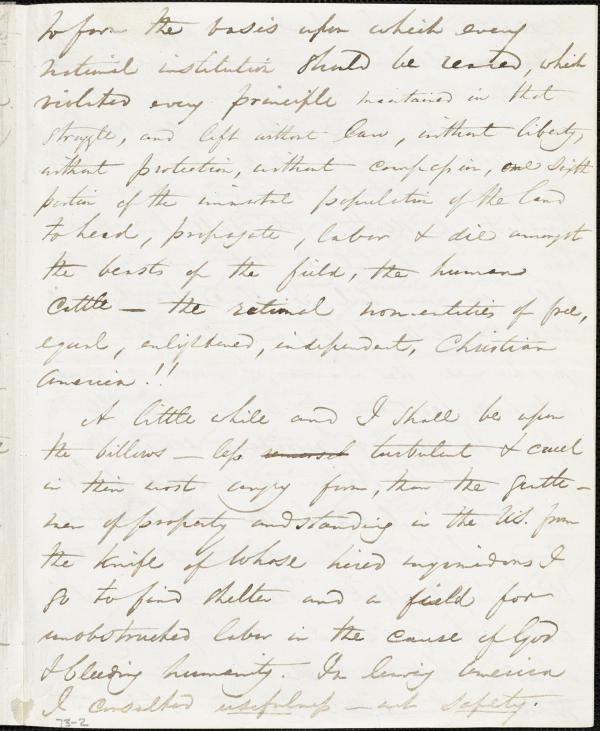 to form the basis upon which every
national institution should be reared, which
violated every principle maintained in that
struggle, and left without law, without liberty,
without protection, without compassion, one sixth
portion of the immortal population of the land
to herd, propagate, labor & die amongst
the beasts of the field, the human
cattle — the rational nonentities of free,
equal, enlightened, independent, Christian
America!!
A little while and I shall be upon
the billows — less turbulent & cruel
in their most angry form, than the gentle-
men of property and standing in the U.S. from
the knife of whose hired myrmidons I
go to find shelter and a field for
unobstructed labor in the cause of God
& bleeding humanity. In leaving America
I consulted usefulness — not safety.
73-2